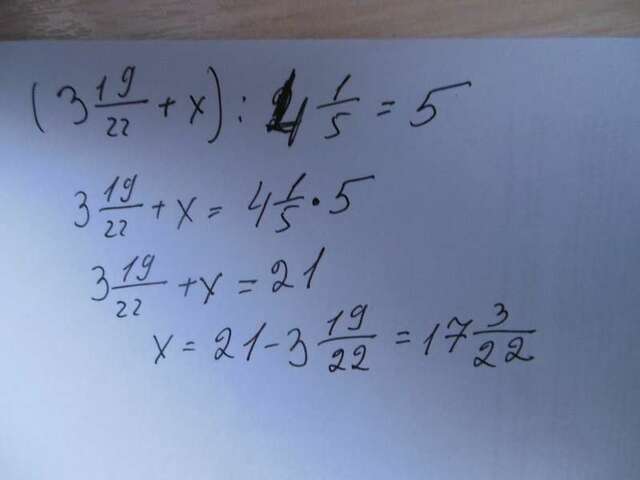 (3 19/22 + x) : 4 1/5 = 5
3 19/22 + x = 4 1/5 • 5
3 19/22 + x = 21
x = 21 - 3 19/22 = 17 3/22